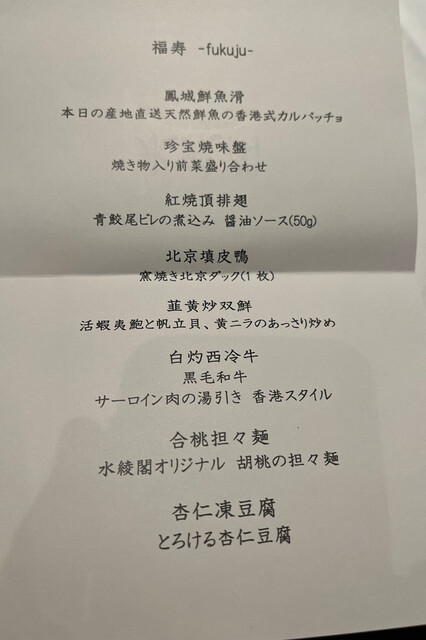 福寿 -fukuju-
鳳城鮮魚滑
本日の産地直送天然鮮魚の香港式カルパッチョ
珍宝焼味盤
焼き物入り前菜盛り合わせ
紅焼頂排翅
青鮫尾ビレの煮込み 醤油ソース(50g)
北京填皮鴨
窯焼き北京ダック(1 枚)
韮黄炒双鮮
活蝦夷鮑と帆立貝、黄ニラのあっさり炒め
白灼西冷牛
黒毛和牛
サーロイン肉の湯引き 香港スタイル
合桃担々麺
水綾閣オリジナル 胡桃の担々麺
杏仁凍豆腐
とろける杏仁豆腐